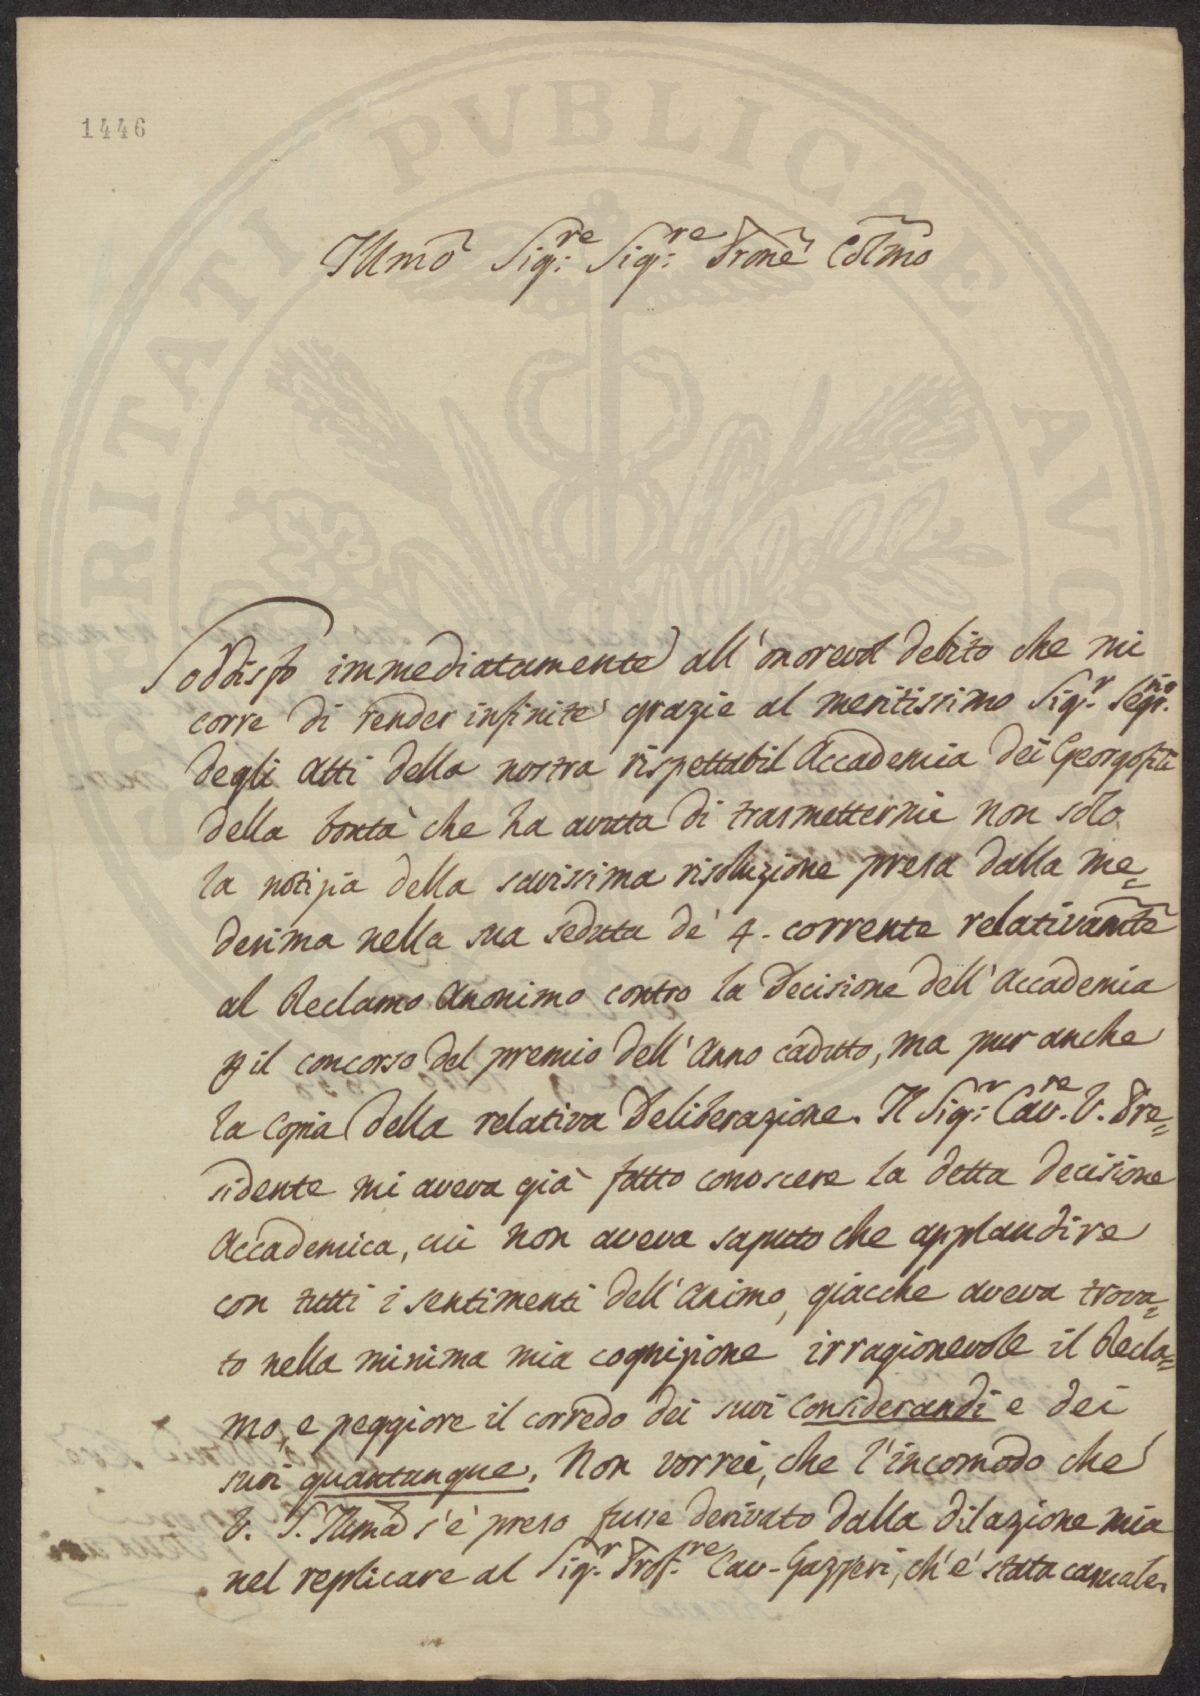 1446
Illmo Sig:re Sig:re Prone Colmo
Soddisfo immediatamente all'onorevol debito che mi
corre di render infinite grazie al meritissimo Sig.r Segr.rio
degli Atti della nostra rispettabil Accademia dei Georgofili
della bontà che ha avuta di trasmettermi non solo
la notizia della savissima risoluzione presa dalla me=
desima nella sua seduta de' 4. corrente relativamte
al Reclamo Anonimo contro la Decisione dell'Accademia
p il concorso del premio dell'Anno caduto, ma pur anche
la Copia della relativa Deliberazione. Il Sig:r Cav.re V. Pre=
sidente mi aveva già fatto conoscere la detta decisione
Accademica, cui non aveva saputo che applaudire
con tutti i sentimenti dell'Animo, giacche aveva trova=
to nella minima mia cognizione irragionevole il Recla=
mo, e peggiore il corredo dei suoi considerandi e dei
suoi quantunque. Non vorrei, che l'incomodo che
V. S. Illma s'è preso fusse derivato dalla dilazione mia
nel replicare al Sig.r Prof.re Cav. Gazzeri, ch'è stata casuale.
PVBLICAE